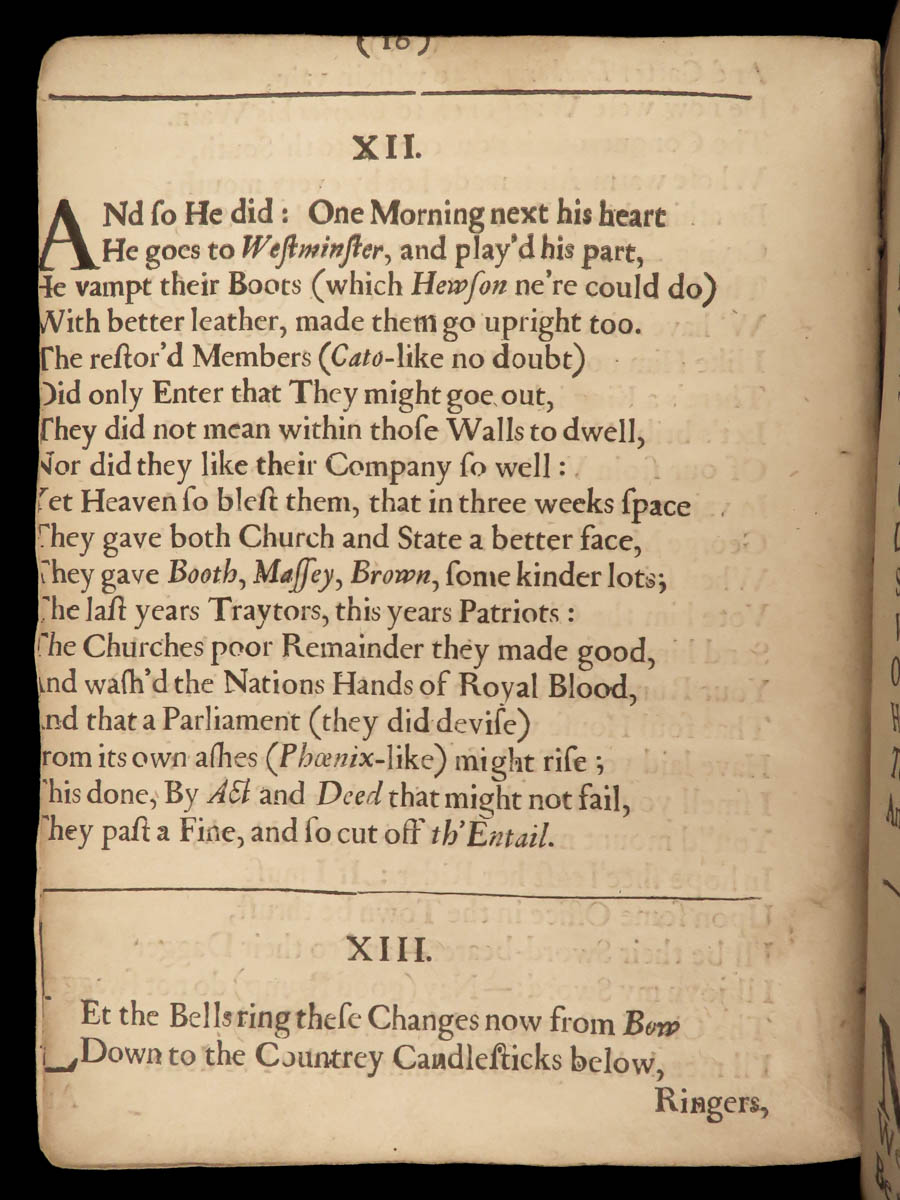 (16)
XII.
ANd ſo He did: One Morning next his heart
He goes to Weſtminſter, and play'd his part,
He vampt their Boots (which Hewſon ne're could do)
With better leather, made them go upright too.
The reſtor'd Members (Cato-like no doubt)
Did only Enter that They might goe out,
They did not mean within thoſe Walls to dwell,
Nor did they like their Company ſo well:
Yet Heaven ſo bleſt them, that in three weeks ſpace
They gave both Church and State a better face,
They gave Booth, Maſſey, Brown, ſome kinder lots;
The laſt years Traytors, this years Patriots:
The Churches poor Remainder they made good,
And waſh'd the Nations Hands of Royal Blood,
And that a Parliament (they did deviſe)
From its own aſhes (Phœnix-like) might riſe;
This done, By Act and Deed that might not fail,
They paſt a Fine, and ſo cut off th'Entail.
XIII.
LEt the Bells ring theſe Changes now from Bow
Down to the Countrey Candleſticks below,
Ringers,